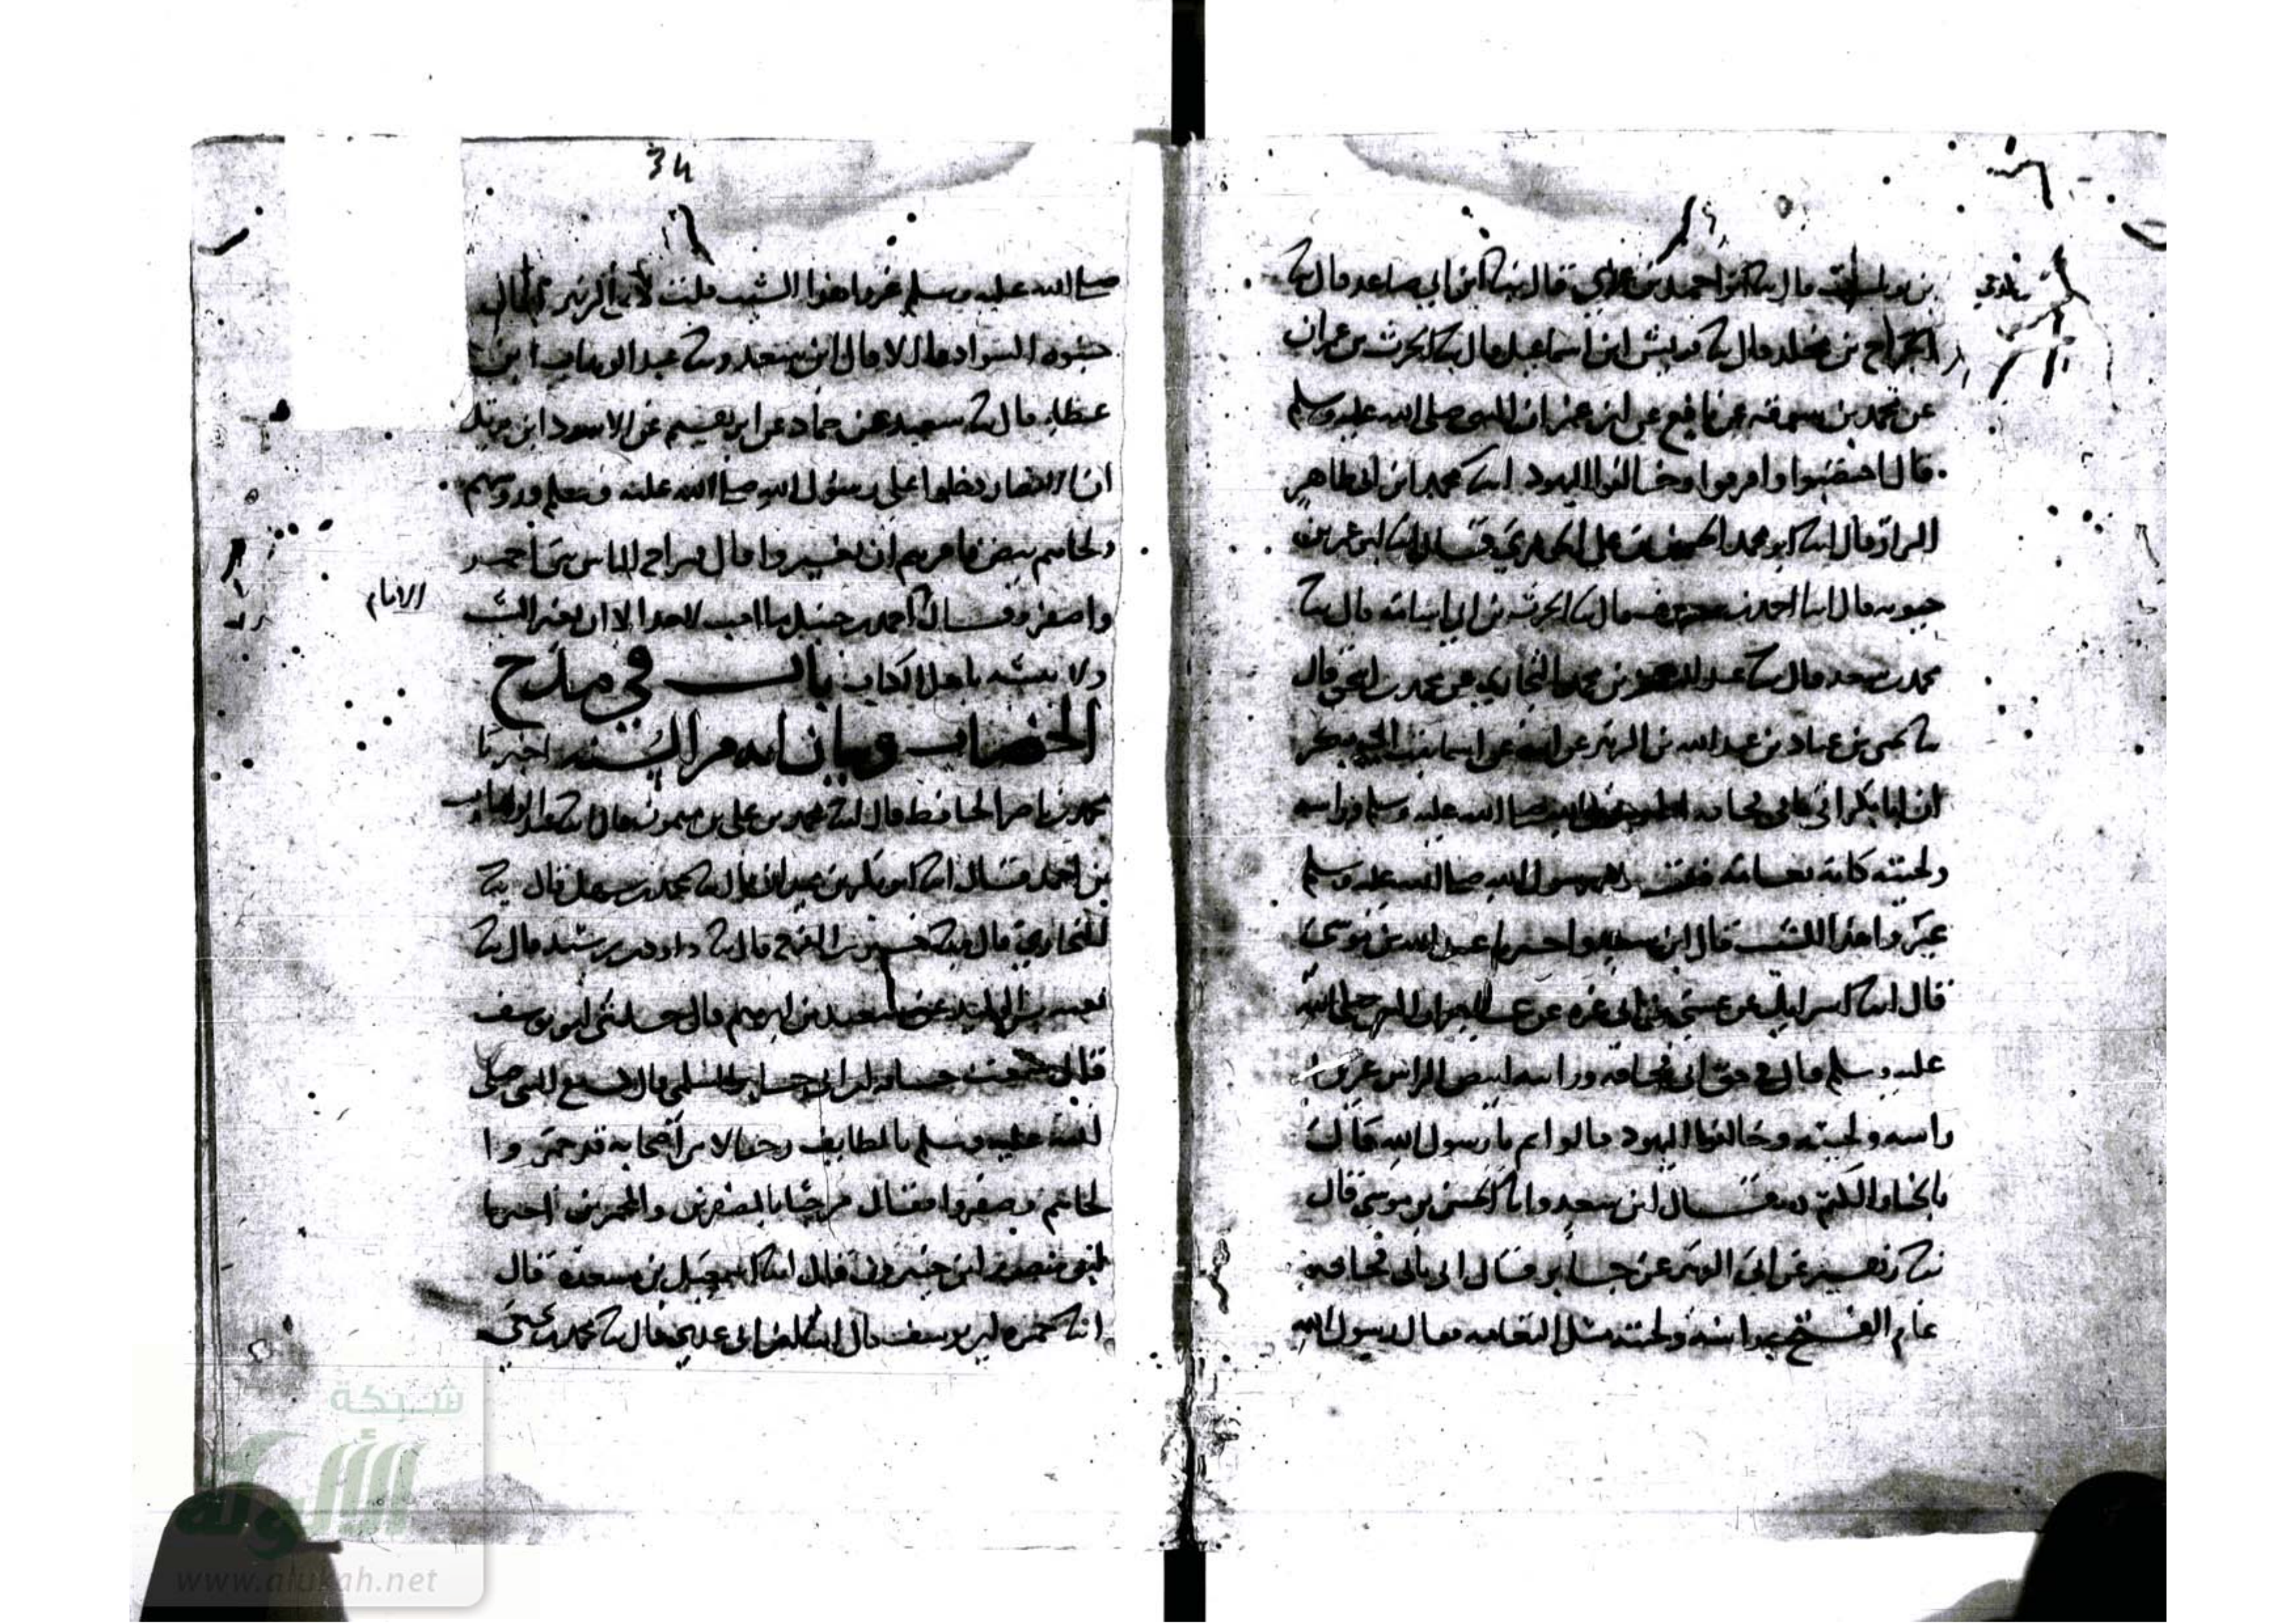 قال ثنا ابن أبي صاعد قال ثنا
الجراح بن مخلد قال ثنا قريش ابن اسماعيل قال ثنا الحرث بن عمران
عن محمد بن سوقه عن نافع عن ابن عمر ان النبي صلى الله عليه وسلم
قال اخضبوا وافرقوا وخالفوا اليهود انبا محمد ابن ابي طاهر
البزاز قال انبا ابو محمد الحسن بن علي الجوهري قال انبا ابن عمر بن
حيويه قال انبا احمد بن معروف قال ثنا الحرث بن ابي اسامه قال ثنا
محمد بن سعد قال ثنا عبد الرحمن بن محمد المحاربي عن محمد بن اسحق قال
ثنا يحيى بن عباد بن عبد الله بن الزبير عن ابيه عن اسما بنت ابي بكر
ان ابا بكر اتى بابي قحافه صلى الله عليه وسلم وراسه
ولحيته كانه ثغامة فقال رسول الله صلى الله عليه وسلم
غيروا هذا الشيب قال ابن سعد واخبرنا عبيد الله بن موسى
قال انبا اسرائيل عن ان النبي صلى الله
عليه وسلم قال في حق ابي قحافه وراه ابيض الراس غيروا
راسه ولحيته وخالفوا اليهود قالوا بم يا رسول الله قال
بالحنا والكتم قال ابن سعد وانا الحسن بن موسى قال
ثنا زهير عن ابي الزبير عن جابر قال اتي بابي قحافه
عام الفتح وراسه ولحيته مثل الثغامه فقال رسول الله
34
صلى الله عليه وسلم غيروا هذا الشيب قلت لابي الزبير اقال
جنبوه السواد قال لا قال ابن سعد وثنا عبد الوهاب ابن
عطاء قال ثنا سعيد عن حماد عن ابرهيم عن الاسود ابن يزيد
ان الانصار دخلوا على رسول الله صلى الله عليه وسلم وروسهم
ولحاهم بيض فامرهم ان يغيروا قال فراح الناس بين احمر
واصفر وقال احمد بن حنبل ما احب لاحد الا ان يغير الشيب
الامام
ولا يتشبه باهل الكتاب باب في مدح
الخضاب وبيان انه من السنه اخبرنا
محمد بن ناصر الحافظ قال انبا محمد بن علي بن ميمون قال انبا عبد الوهاب
بن احمد قال انبا ابو بكر بن عبدان قال ثنا محمد بن سهل قال ثنا
البخاري قال ثنا حسين بن الفرج قال ثنا داود بن رشيد قال ثنا
سعيد بن ابرهيم قال حدثني ابو يوسف
قال سمعت حسان ابن ابي جابر السلمي قال مع النبي صلى
الله عليه وسلم بالطايف رجالا من اصحابه قد حمروا
لحاهم وصفروا فقال مرحبا بالمصفرين والمحمرين اخبرنا
ابو منصور ابن خيرون قال انبا اسمعيل بن مسعدة قال
انبا حمزه ابن يوسف قال انبا ابن عدي قال ثنا محمد بن يحيى
شبكة
الألوكة
www.alukah.net